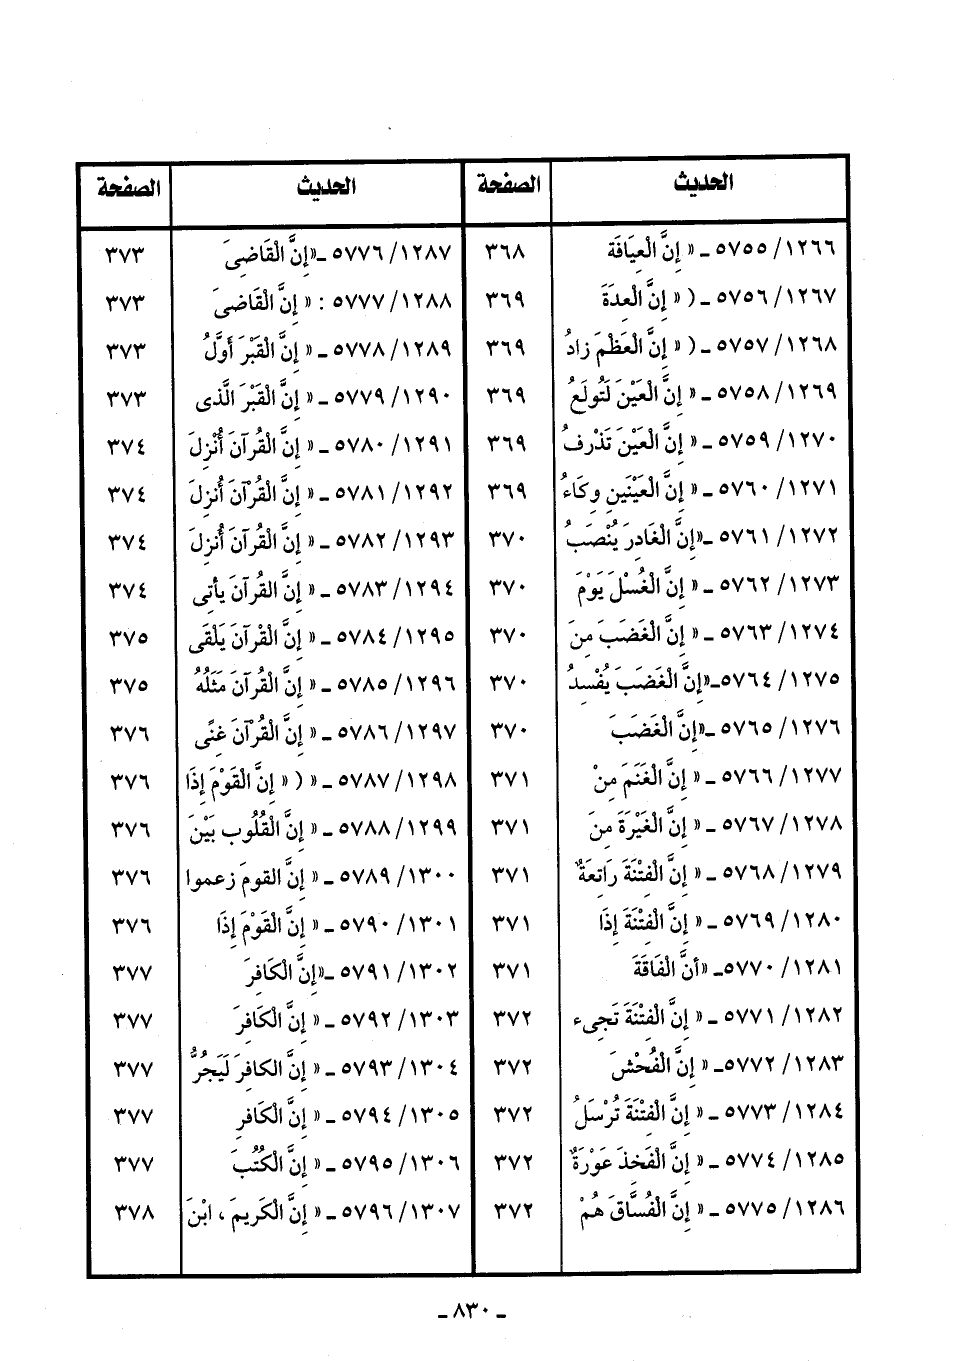 الحديث الصفحة الحديث الصفحة
١٢٦٦/ ٥٧٥٥ ـ « إِنَّ الْعِيَافَة ٣٦٨ ١٢٨٧/ ٥٧٧٦ ـ«إِنَّ الْقَاضِىَ ٣٧٣
١٢٦٧/ ٥٧٥٦ ـ ( « إِنَّ الْعِدَةَ ٣٦٩ ١٢٨٨/ ٥٧٧٧ : « إِنَّ الْقَاضِىَ ٣٧٣
١٢٦٨/ ٥٧٥٧ ـ ( « إِنَّ الْعَظْمَ زادُ ٣٦٩ ١٢٨٩/ ٥٧٧٨ ـ « إِنَّ الْقَبْرَ أَوَّلُ ٣٧٣
١٢٦٩/ ٥٧٥٨ ـ « إِنَّ الْعَيْنَ لَتُولَعُ ٣٦٩ ١٢٩٠/ ٥٧٧٩ ـ « إِنَّ الْقَبْرَ الَّذى ٣٧٣
١٢٧٠/ ٥٧٥٩ ـ « إِنَّ الْعَيْنَ تَذْرِفُ ٣٦٩ ١٢٩١/ ٥٧٨٠ ـ « إِنَّ الْقُرآنَ أُنْزِلَ ٣٧٤
١٢٧١/ ٥٧٦٠ ـ « إِنَّ الْعَيْنَينِ وِكَاءُ ٣٦٩ ١٢٩٢/ ٥٧٨١ ـ « إِنَّ الْقُرْآنَ أُنزِلَ ٣٧٤
١٢٧٢/ ٥٧٦١ ـ«إِنَّ الْغَادِرَ يُنْصَبُ ٣٧٠ ١٢٩٣/ ٥٧٨٢ ـ « إِنَّ الْقُرآنَ أُنزِلَ ٣٧٤
١٢٧٣/ ٥٧٦٢ ـ « إِنَّ الْغُسْلَ يَوْمَ ٣٧٠ ١٢٩٤/ ٥٧٨٣ ـ « إِنَّ القُرآنَ يأتِى ٣٧٤
١٢٧٤/ ٥٧٦٣ ـ « إِنَّ الْغَضَبَ مِنَ ٣٧٠ ١٢٩٥/ ٥٧٨٤ ـ « إِنَّ الْقْرآنَ يَلْقَى ٣٧٥
١٢٧٥/ ٥٧٦٤ ـ«إِنَّ الْغَضَبَ يُفْسِدُ ٣٧٠ ١٢٩٦/ ٥٧٨٥ ـ « إِنَّ الْقُرآنَ مَثَلُهُ ٣٧٥
١٢٧٦/ ٥٧٦٥ ـ«إِنَّ الْغَضَبَ ٣٧٠ ١٢٩٧/ ٥٧٨٦ ـ « إِنَّ الْقُرْآنَ غِنًى ٣٧٦
١٢٧٧/ ٥٧٦٦ ـ « إِنَّ الْغَنَمَ مِنْ ٣٧١ ١٢٩٨/ ٥٧٨٧ ـ « ( « إِنَّ الْقَوْمَ إِذَا ٣٧٦
١٢٧٨/ ٥٧٦٧ ـ « إِنَّ الْغَيْرَةَ مِنَ ٣٧١ ١٢٩٩/ ٥٧٨٨ ـ « إِنَّ الْقُلُوب بَيْنَ ٣٧٦
١٢٧٩/ ٥٧٦٨ ـ « إِنَّ الْفِتْنَةَ رَاتِعَةٌ ٣٧١ ١٣٠٠/ ٥٧٨٩ ـ « إِنَّ القومَ زعموا ٣٧٦
١٢٨٠/ ٥٧٦٩ ـ « إِنَّ الْفِتْنَةَ إِذَا ٣٧١ ١٣٠١/ ٥٧٩٠ ـ « إِنَّ الْقَوْمَ إِذَا ٣٧٦
١٢٨١/ ٥٧٧٠ ـ «أنَّ الْفَاقَةَ ٣٧١ ١٣٠٢/ ٥٧٩١ ـ«إِنَّ الْكَافِرَ ٣٧٧
١٢٨٢/ ٥٧٧١ ـ « إِنَّ الْفِتْنَةَ تَجِىء ٣٧٢ ١٣٠٣/ ٥٧٩٢ ـ « إِنَّ الْكَافِرَ ٣٧٧
١٢٨٣/ ٥٧٧٢ ـ « إِنَّ الْفُحْشَ ٣٧٢ ١٣٠٤/ ٥٧٩٣ ـ « إِنَّ الكافِرَ لَيَجُرُّ ٣٧٧
١٢٨٤/ ٥٧٧٣ ـ « إِنَّ الْفِتْنَةَ تُرْسَلُ ٣٧٢ ١٣٠٥/ ٥٧٩٤ ـ « إِنَّ الْكَافِرِ ٣٧٧
١٢٨٥/ ٥٧٧٤ ـ « إِنَّ الْفَخِذَ عَوْرَةٌ ٣٧٢ ١٣٠٦/ ٥٧٩٥ ـ « إِنَّ الْكُتُبَ ٣٧٧
١٢٨٦/ ٥٧٧٥ ـ « إِنَّ الْفُسَّاقَ هُمْ ٣٧٢ ١٣٠٧/ ٥٧٩٦ ـ « إِنَّ الْكَرِيمَ ، ابْنَ ٣٧٨
ـ ٨٣٠ ـ